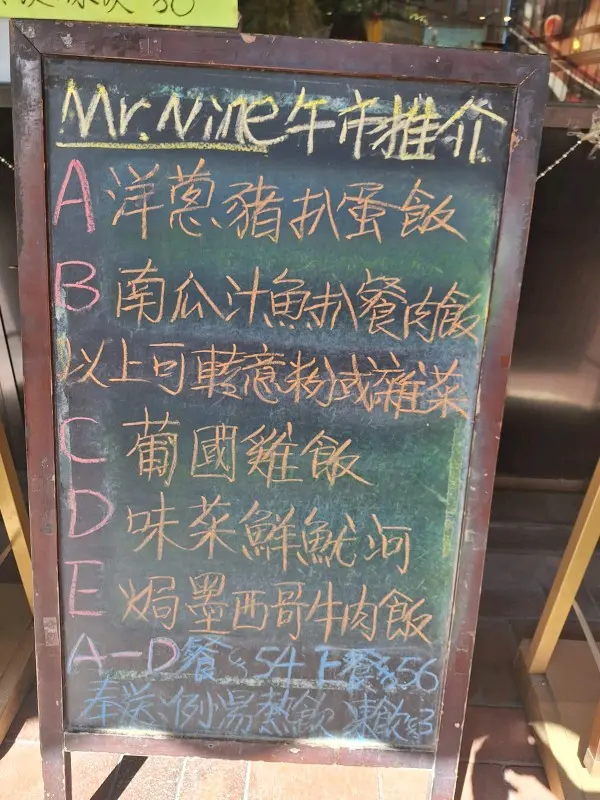 Mr. Nine 午市推介
A 洋蔥豬扒蛋飯
B 南瓜汁魚扒餐肉飯
以上可轉意粉或雜菜
C 葡國雞飯
D 味菜鮮魷河
E 焗墨西哥牛肉飯
A-D餐 $54 E餐 $56
奉送例湯熱飲 凍飲$3